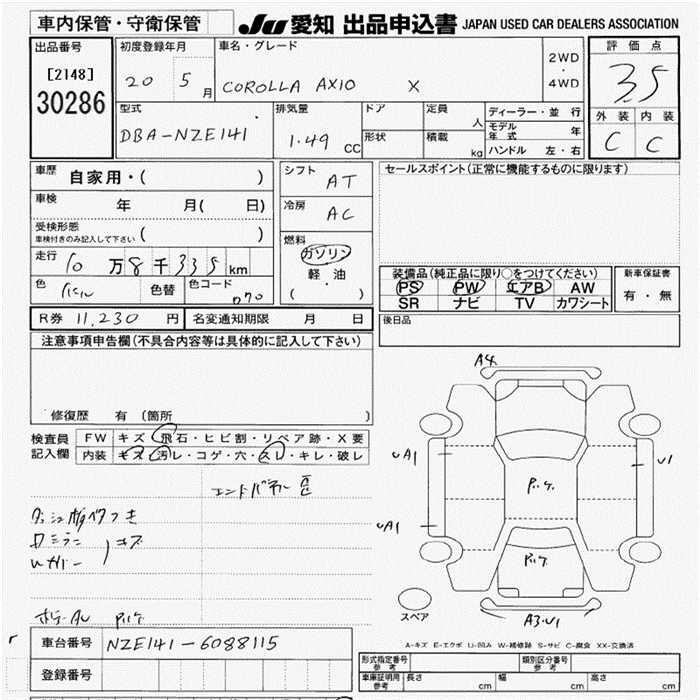 車内保管・守衛保管 JU 愛知 出品申込書 JAPAN USED CAR DEALERS ASSOCIATION
出品番号 初度登録年月 車名・グレード 評価点
[2148] 20 5月 COROLLA AXIO X 2WD・4WD 3.5
30286
型式 排気量 ドア 定員 人 ディーラー・並行 外装 内装
DBA-NZE141 1.49 CC 形状 積載 kg モデル年式 年 C C
ハンドル 左・右
車歴 自家用・( ) シフト AT セールスポイント(正常に機能するものに限ります)
車検 年 月( 日) 冷房 AC
受検形態
車検付きのみ記入して下さい ( )
燃料
走行 10万8千335km ガソリン 装備品(純正品に限り○をつけてください) 新車保証書
軽油 PS PW エアB AW 有・無
色 色替 色コード ( ・ ) SR ナビ TV カワシート
R券 11,230 円 名変通知期限 月 日 後日品
注意事項申告欄(不具合内容等は具体的に記入して下さい)
A4
修復歴 有 (箇所 )
検査員 FW キズ・飛石・ヒビ割・リペア跡・X要
記入欄 内装 キズ・汚レ・コゲ・穴・スレ・キレ・破レ
UA1 U1
エンドパネル
パケ
UA1
パケ
スペア
A3.U1
A-キズ E-エクボ U-凹み W-補修跡 S-サビ C-腐食 XX-交換済
車台番号 NZE141-6088115
登録番号
形式指定番号 参考 類別区分番号 参考
車庫証明用 参考 長さ cm 幅 cm 高さ cm